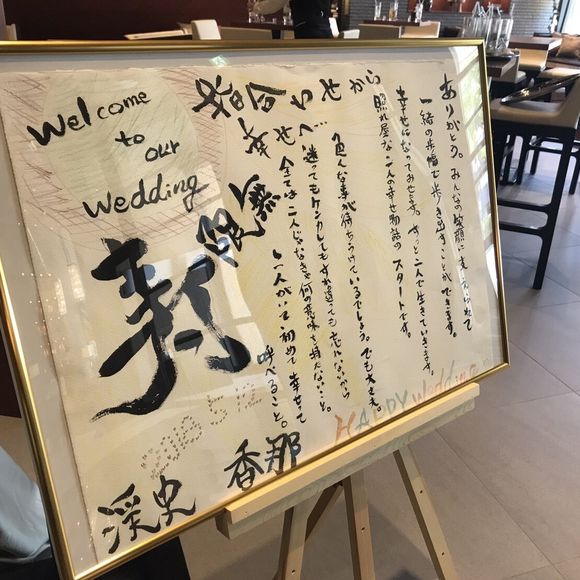 Welcome
to our
Wedding
指合わせから
幸せへ
無限
寿
ありがとう。みんなの笑顔に支えられて
一緒の歩幅で歩き出すことができます。
幸せになってみせます。ずっと二人で生きていきます。
照れ屋な二人の幸せ物語のスタートです。
色んな事が待ちうけているでしょう。でも大丈夫。
迷ってもケンカしてもすれ違っても
全ては二人じゃなきゃ何の意味も持たないこと。
一人がいて初めて幸せって
呼べること。
HAPPY Wedding
深史
香那